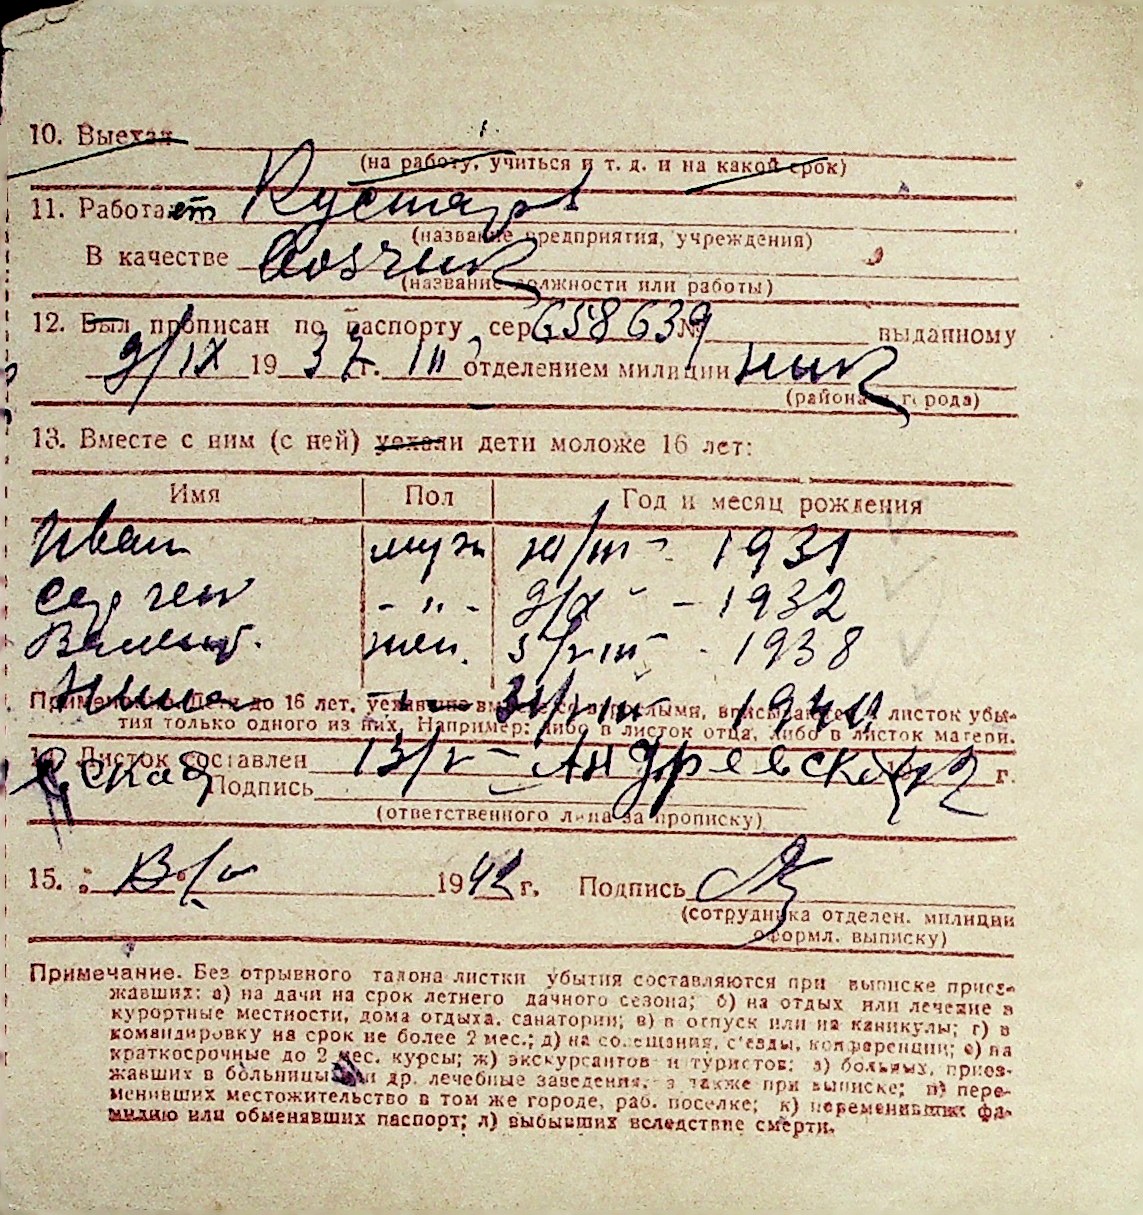 10. Выехал
(на работу, учиться и т. д. и на какой срок)
11. Работает Кустар
(название предприятия, учреждения)
В качестве Возчик
(название должности или работы)
12. Был прописан по паспорту сер 658639 № выданному
9/IX 1937 г. III отделением милиции Ник
(района и города)
13. Вместе с ним (с ней) уехали дети моложе 16 лет:
Имя Пол Год и месяц рождения
Иван муж /III - 1931
Сергей - " - 9/X - 1932
Валент. жен. 5/VIII - 1938
Нина - " - 31/VIII 1940
Примечание. Дети до 16 лет, уехавшие вместе со взрослыми, вписываются в листок убы-
тия только одного из них. Например: либо в листок отца, либо в листок матери.
14. Листок составлен 13/V - Андреевск г.
ская Подпись
(ответственного лица за прописку)
15. 1942 г. Подпись
(сотрудника отделен. милиции
оформл. выписку)
Примечание. Без отрывного талона листки убытия составляются при выписке приез-
жавших: а) на дачи на срок летнего дачного сезона; б) на отдых или лечение в
курортные местности, дома отдыха, санатории; в) в отпуск или на каникулы; г) в
командировку на срок не более 2 мес.; д) на совещания, с'езды, конференции; е) на
краткосрочные до 2 мес. курсы; ж) экскурсантов и туристов; з) больных, приез-
жавших в больницы и др. лечебные заведения, а также при выписке; и) пере-
менивших местожительство в том же городе, раб. поселке; к) переменивших фа-
милию или обменявших паспорт; л) выбывших вследствие смерти.